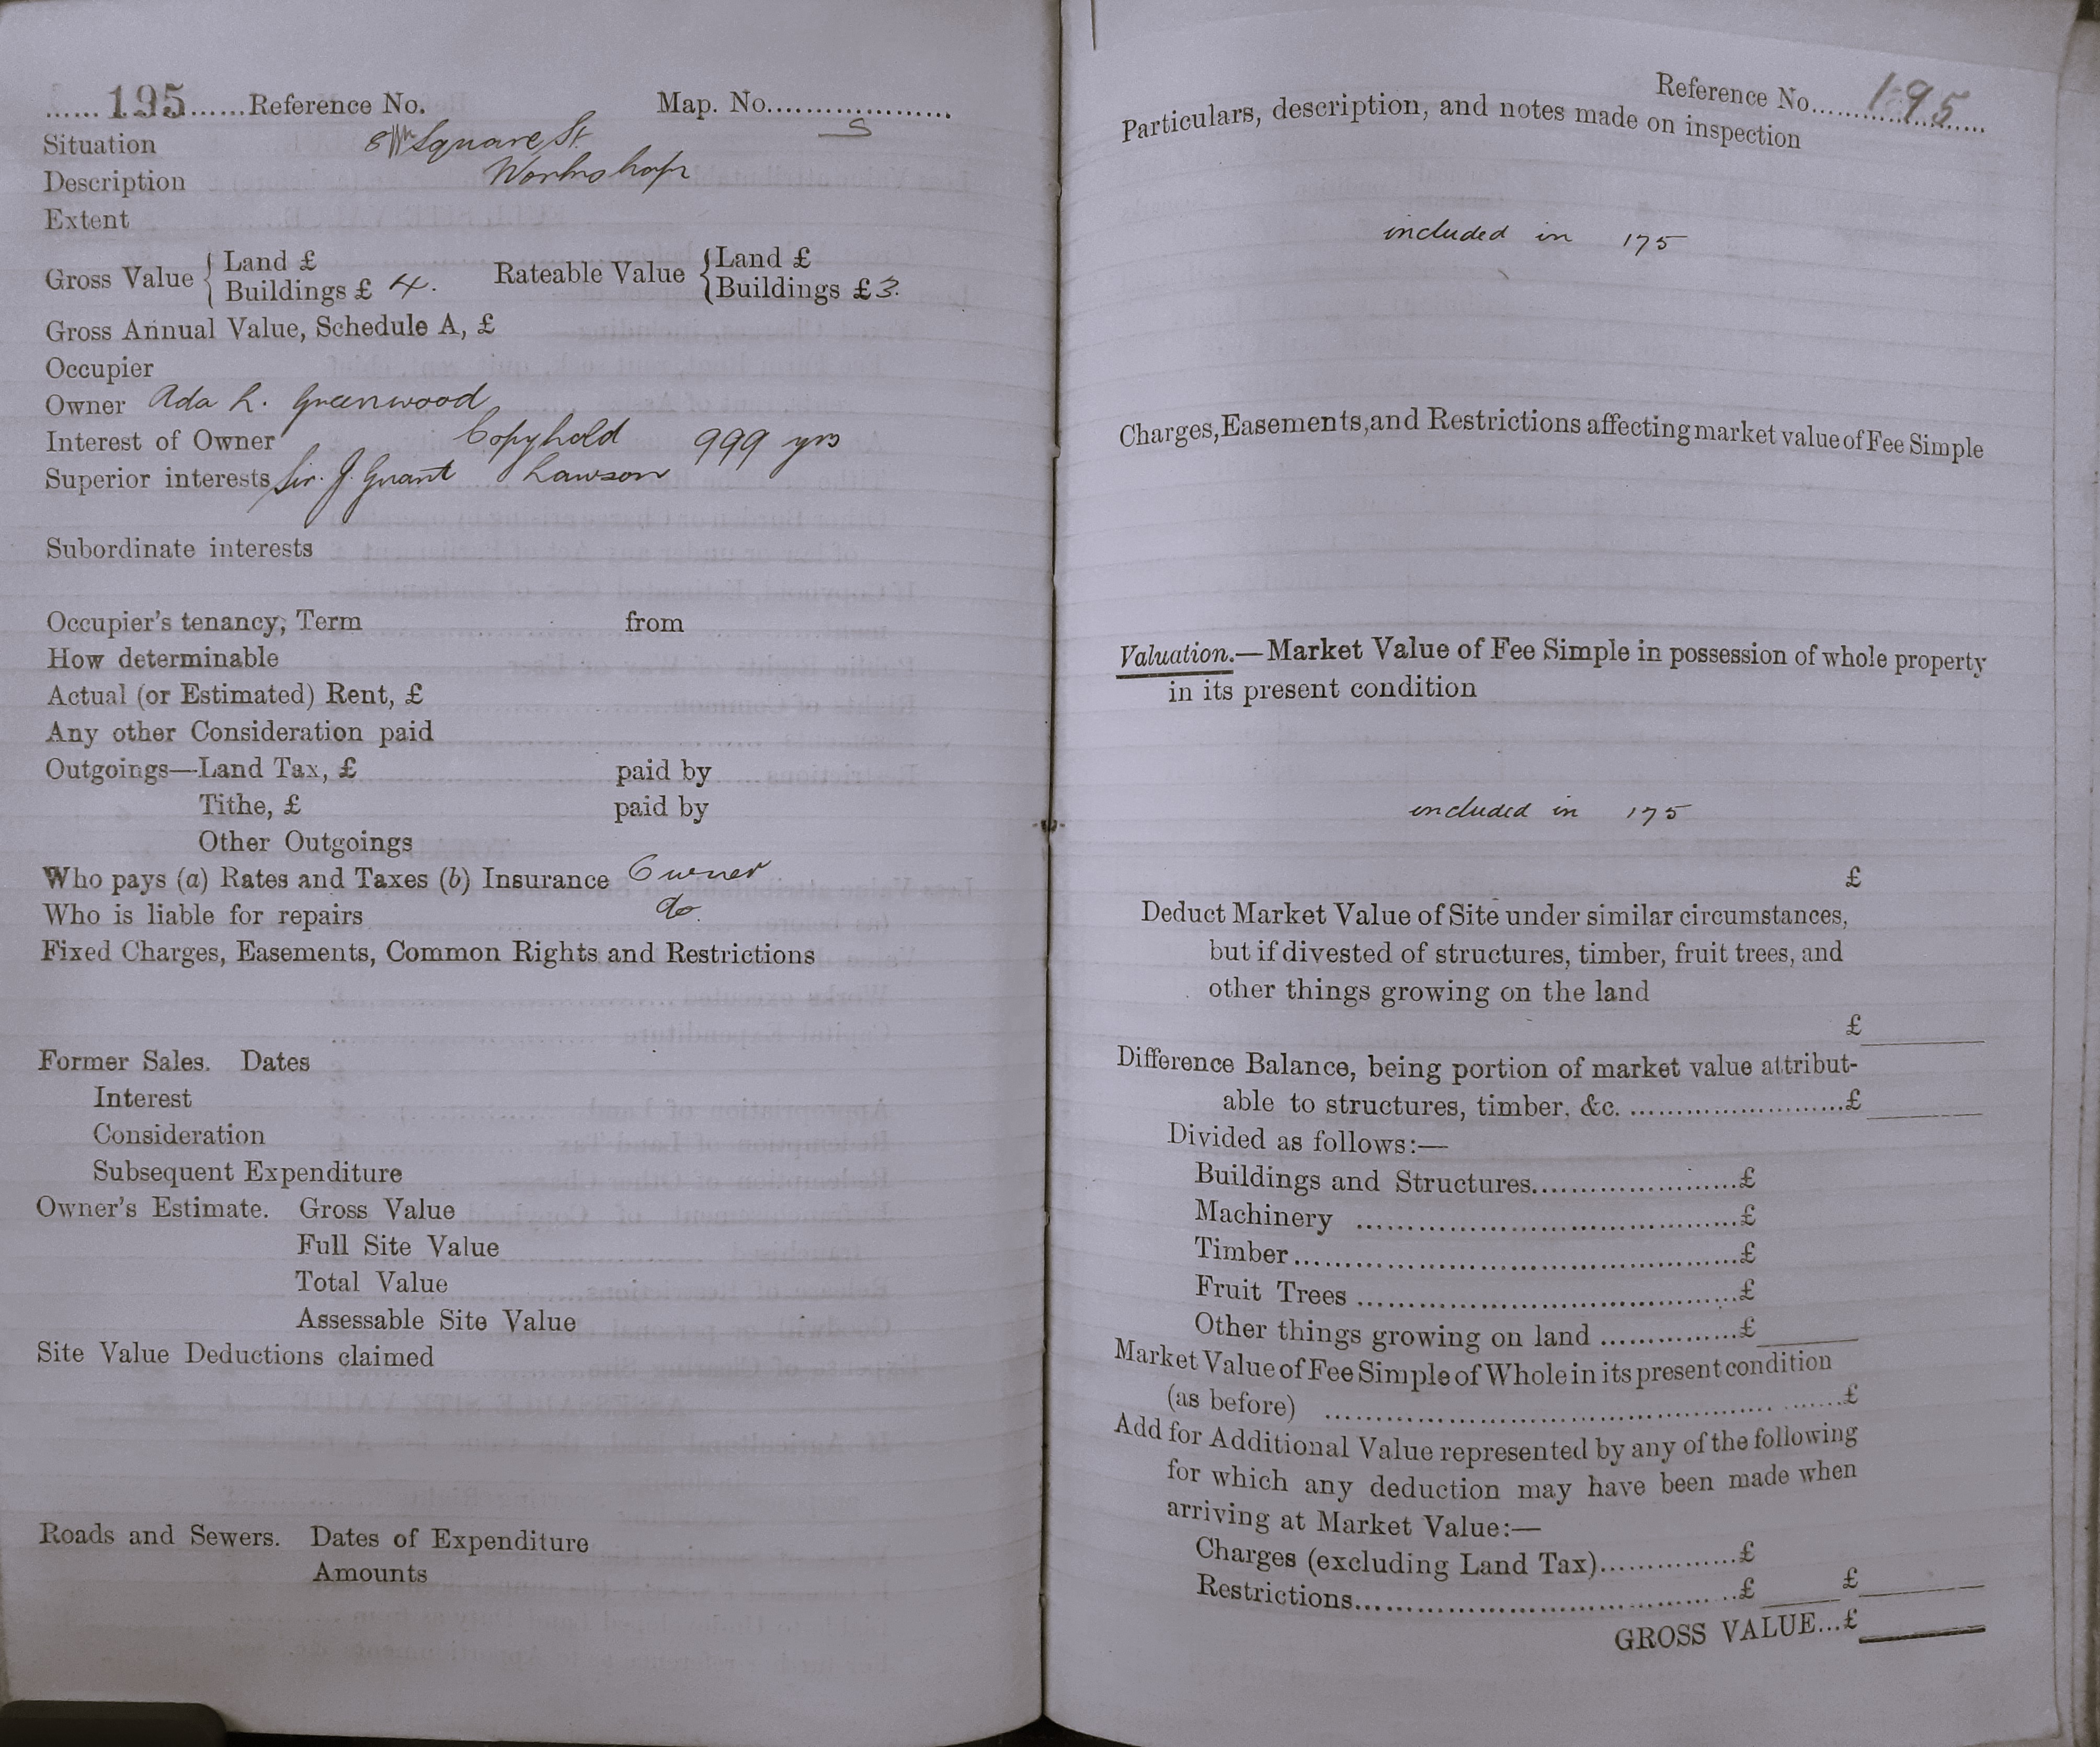 ......195......Reference No. Map. No.....................
Situation Square St. S
Description Workshop
Extent
Gross Value { Land £ Rateable Value { Land £
Buildings £ 4. Buildings £ 3.
Gross Annual Value, Schedule A, £
Occupier
Owner Ada L. Greenwood
Interest of Owner Copyhold 999 yrs
Superior interests Sir. J. Grant Lawson
Subordinate interests
Occupier's tenancy, Term from
How determinable
Actual (or Estimated) Rent, £
Any other Consideration paid
Outgoings—Land Tax, £ paid by
Tithe, £ paid by
Other Outgoings
Who pays (a) Rates and Taxes (b) Insurance Owner
Who is liable for repairs do.
Fixed Charges, Easements, Common Rights and Restrictions
Former Sales. Dates
Interest
Consideration
Subsequent Expenditure
Owner's Estimate. Gross Value
Full Site Value
Total Value
Assessable Site Value
Site Value Deductions claimed
Roads and Sewers. Dates of Expenditure
Amounts
Reference No......195......
Particulars, description, and notes made on inspection
included in 175
Charges, Easements, and Restrictions affecting market value of Fee Simple
Valuation.—Market Value of Fee Simple in possession of whole property
in its present condition
included in 175
£
Deduct Market Value of Site under similar circumstances,
but if divested of structures, timber, fruit trees, and
other things growing on the land
£
Difference Balance, being portion of market value attribut-
able to structures, timber, &c. ........................£
Divided as follows:—
Buildings and Structures........................£
Machinery ............................................£
Timber....................................................£
Fruit Trees ............................................£
Other things growing on land ................£
Market Value of Fee Simple of Whole in its present condition
(as before) ............................................................£
Add for Additional Value represented by any of the following
for which any deduction may have been made when
arriving at Market Value:—
Charges (excluding Land Tax)................£
Restrictions............................................£ £
GROSS VALUE...£